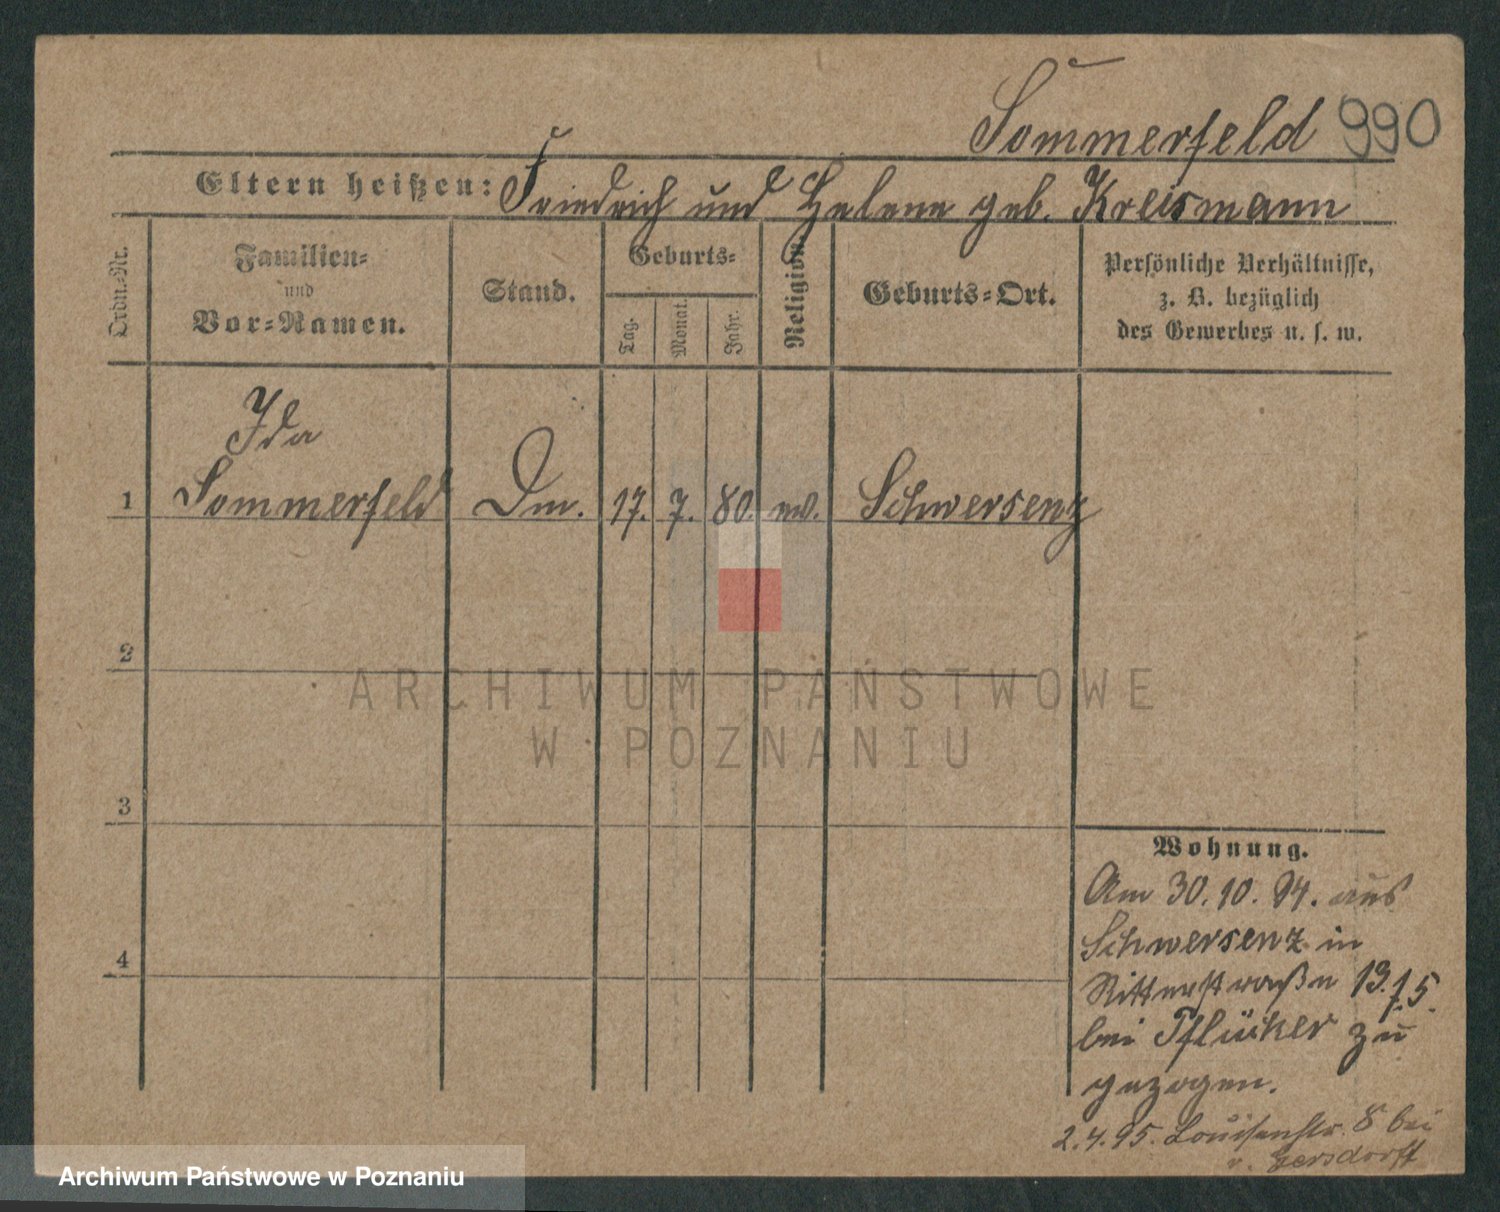 Sommerfeld 990
Eltern heißen: Friedrich und Helene geb. Kreismann
Ordn.-Nr.
Familien-
und
Vor-Namen.
Stand.
Geburts-
Tag.
Monat.
Jahr.
Religion.
Geburts-Ort.
Persönliche Verhältnisse,
z. B. bezüglich
des Gewerbes u. s. w.
Ida
1 Sommerfeld Dm. 17. 7. 80. ev. Schwersenz
2
3
4
ARCHIWUM PAŃSTWOWE
W POZNANIU
Wohnung.
Am 30.10.94. aus
Schwersenz in
Ritterstraße 13./5.
bei Pflücker zu
gezogen.
2.4.95. Louisenstr. 8 bei
v. Gersdorff
Archiwum Państwowe w Poznaniu